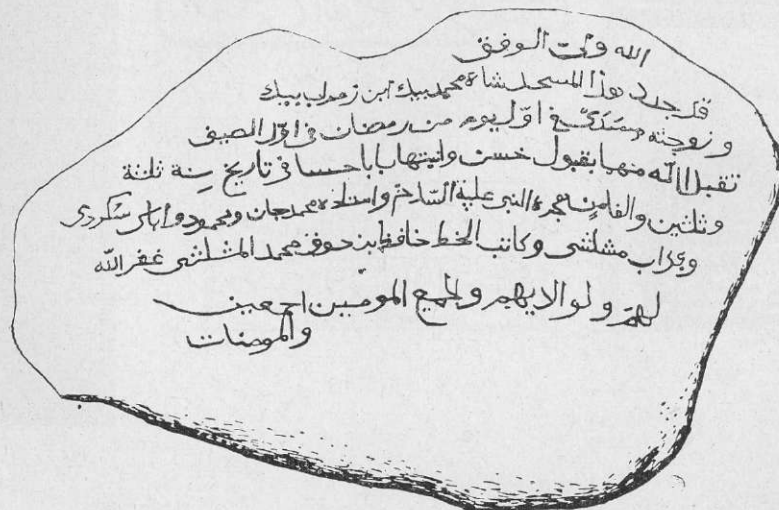 الله ولي الوفق
قد جدد هذا المسجد شاه محمد بيك ابن زهراب بيك
و زوجته في اول يوم من رمضان في اول الصيف
تقبل الله منها بقبول حسن وانبتها باباحسا في تاريخ سنة ثلثة
وثلثين والف من هجرة النبي عليه السلام واستاذه محمد جان ومحمود
ومحراب مشلشى وكاتب الخط حافظ ابن محمد المشلشى غفر الله
لهم و لوالايهم ولجميع المومنين اجمعين
والمومنات